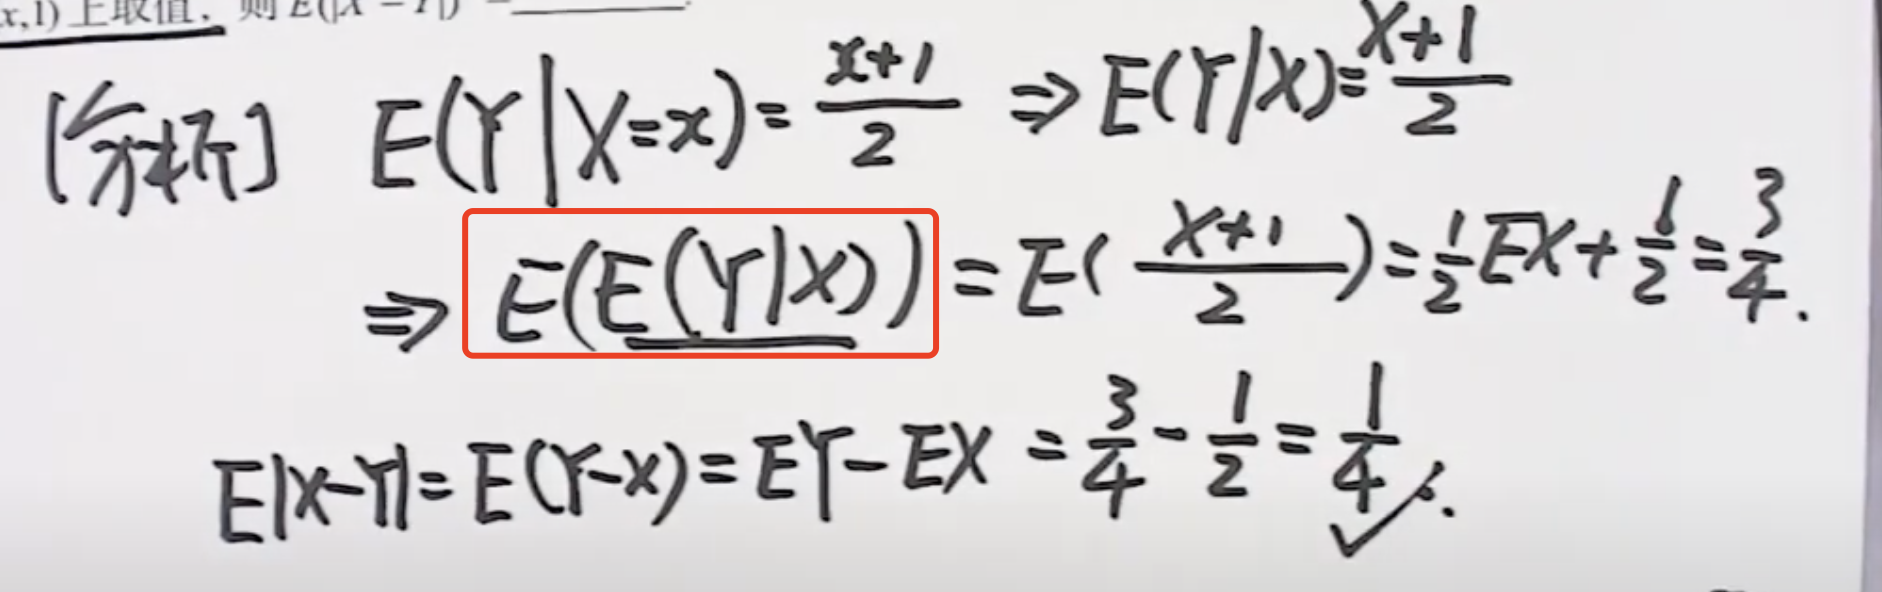 x,1) 上取值, 则 E(|X − Y|) = ______.
[分析] E(Y|X=x) = \frac{x+1}{2} ⇒ E(Y|X) = \frac{X+1}{2}
⇒ E(E(Y|X)) = E(\frac{X+1}{2}) = \frac{1}{2}EX + \frac{1}{2} = \frac{3}{4}.
E|X−Y| = E(Y−X) = EY − EX = \frac{3}{4} − \frac{1}{2} = \frac{1}{4}.